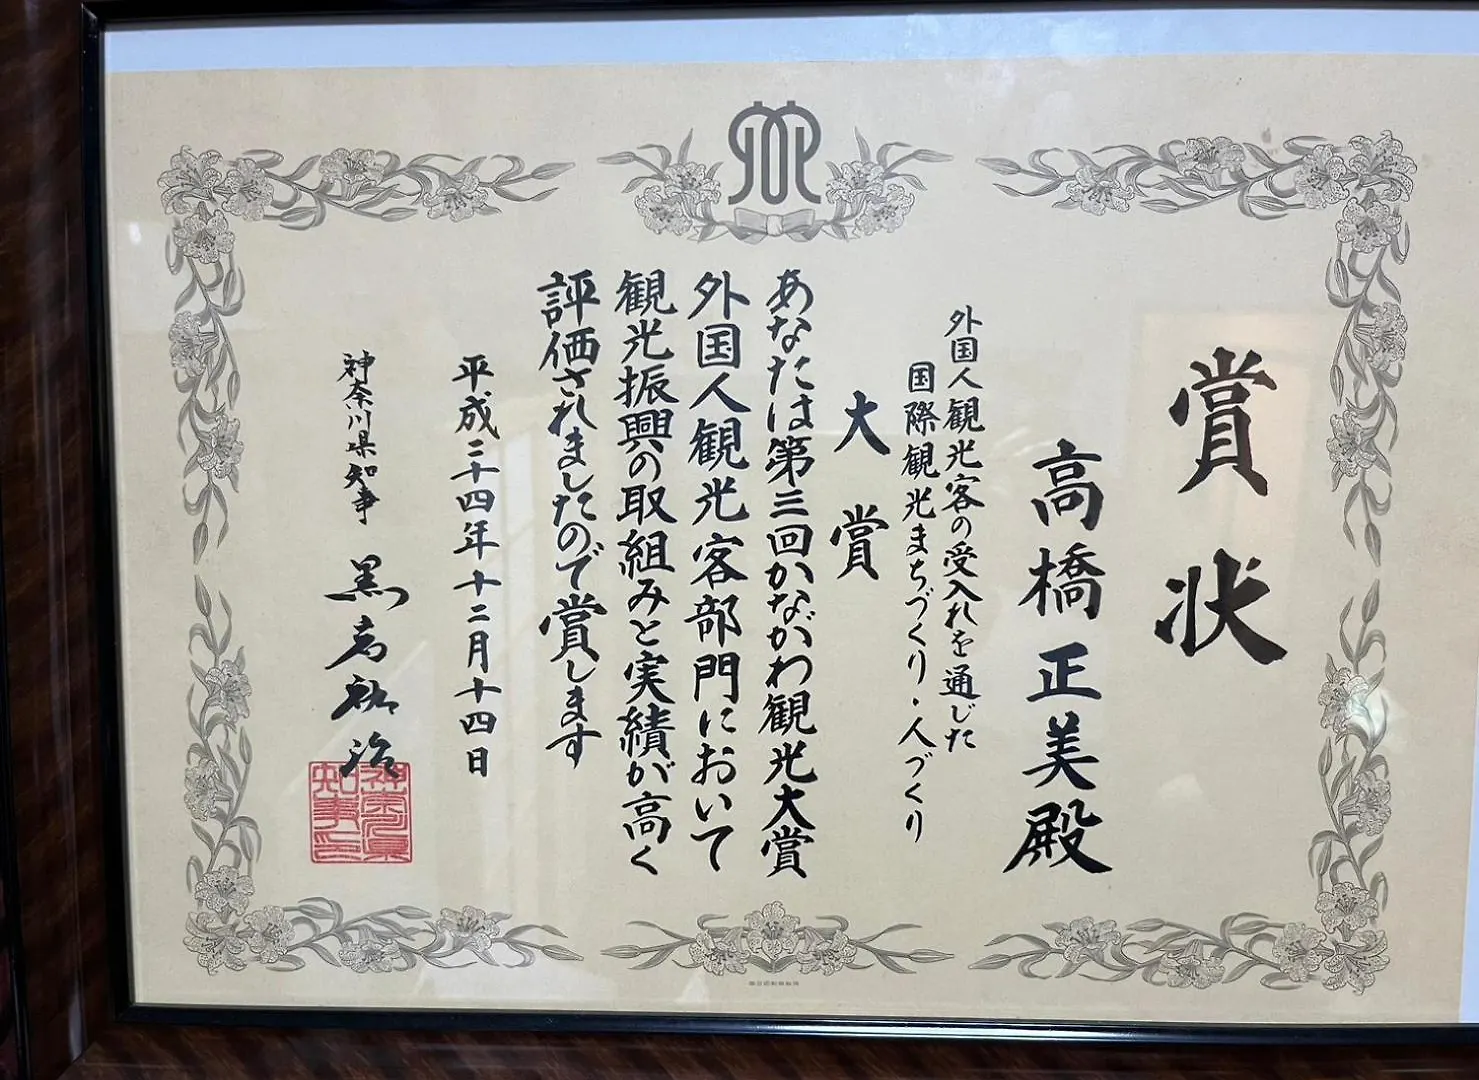 賞状
高橋正美殿
外国人観光客の受入れを通じた
国際観光まちづくり・人づくり
大賞
あなたは第三回かながわ観光大賞
外国人観光客部門において
観光振興の取組みと実績が高く
評価されましたので賞します
平成二十四年十二月十四日
神奈川県知事 黒岩祐治